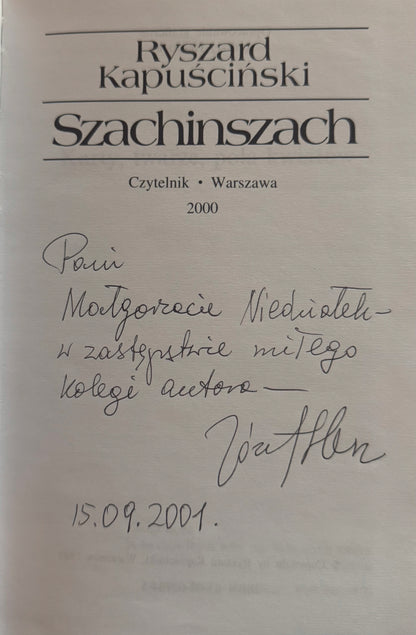 Ryszard
Kapuściński
Szachinszach
Czytelnik • Warszawa
2000
Pani
Małgorzacie Niedziałek –
w zastępstwie miłego
kolegi autora —
Józef Hen
15.09.2001.